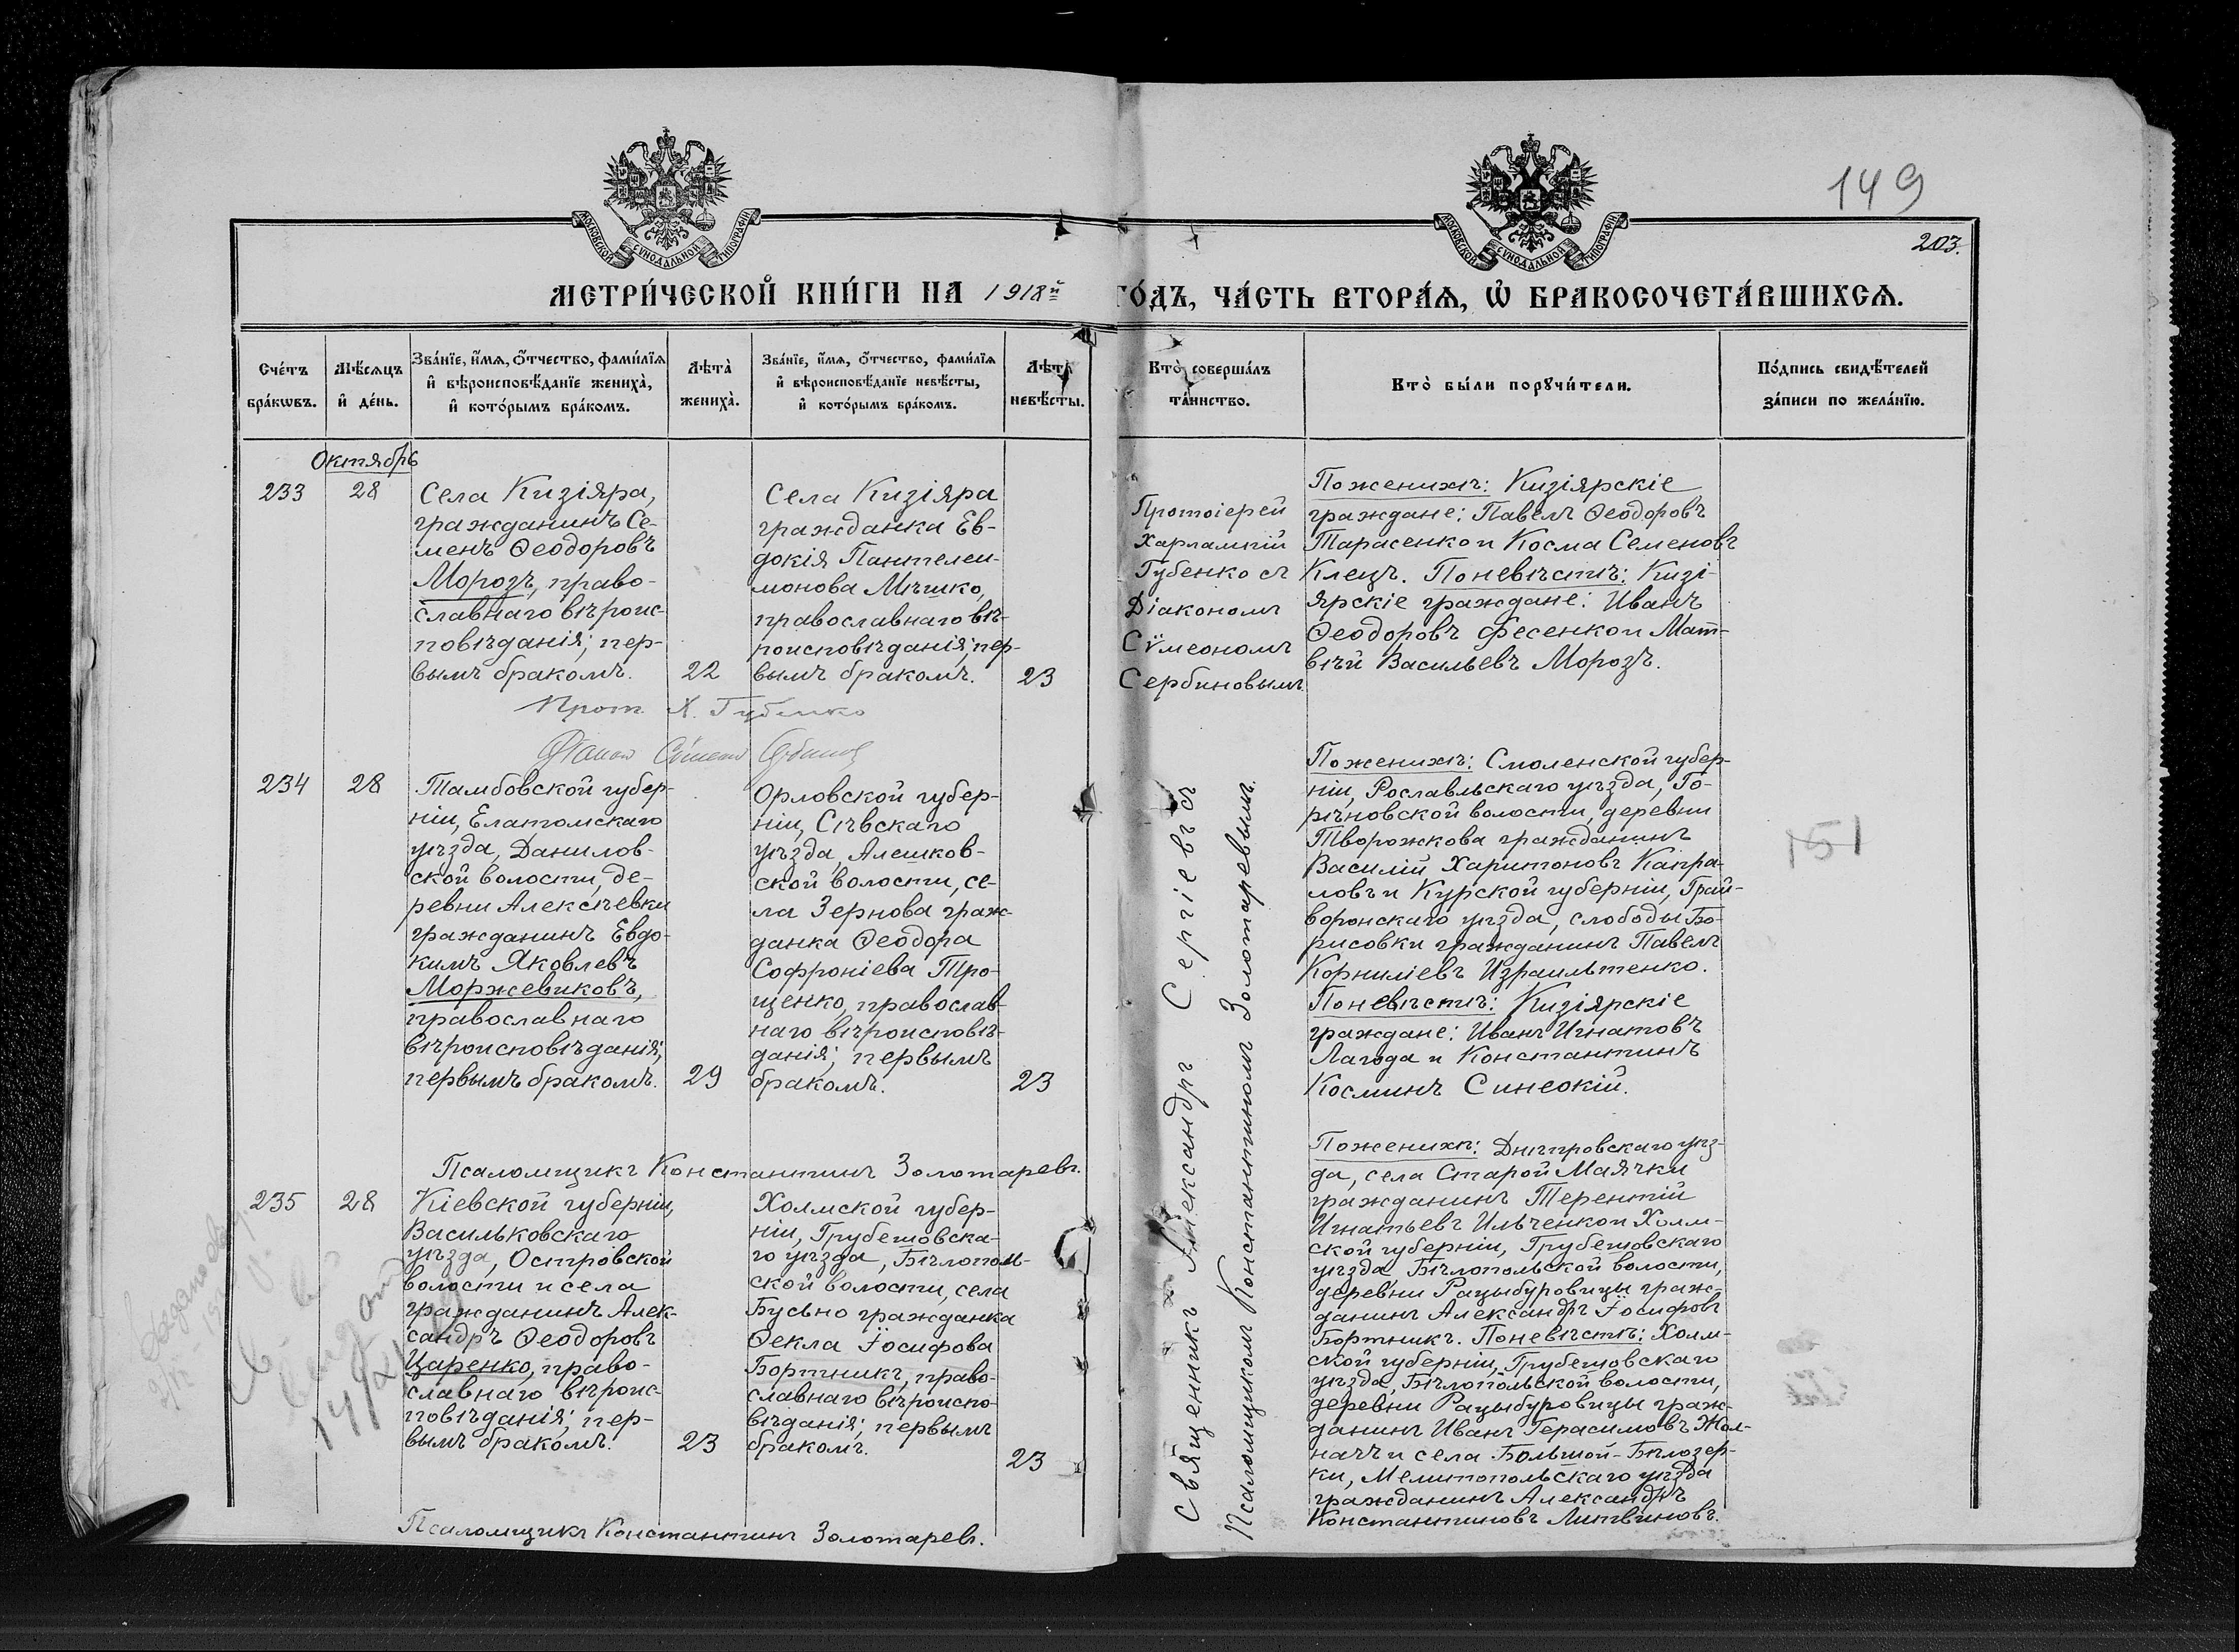 149
203.
МОСКОВСКОЙ СУНОДАЛЬНОЙ ТИПОГРАФІИ
МОСКОВСКОЙ СУНОДАЛЬНОЙ ТИПОГРАФІИ
МЕТРИ́ЧЕСКОЙ КНИ́ГИ НА 1918й ГО́ДЪ, ЧА́СТЬ ВТОРА́Ѧ, Ѽ БРАКОСОЧЕТА́ВШИХСѦ.
Сче́тъ
бра́кѡвъ.
Мѣ́сѧцъ
и҆ де́нь.
Зва́нїе, и҆́мѧ, ѻ҆́тчество, фами́лїѧ
и҆ вѣроисповѣ́данїе жениха̀,
и҆ кото́рымъ бра́комъ.
Лѣта̀
жениха̀.
Зва́нїе, и҆́мѧ, ѻ҆́тчество, фами́лїѧ
и҆ вѣроисповѣ́данїе невѣ́сты,
и҆ кото́рымъ бра́комъ.
Лѣта̀
невѣ́сты.
Кто̀ соверша́лъ
та́инство.
Кто̀ бы́ли порꙋчи́тели.
По́дпись свидѣ́телей
за́писи по жела́нїю.
Октябрь
233
28
Села Кизіяра,
гражданинъ Се-
менъ Ѳеодоровъ
Морозъ, право-
славнаго вѣроис-
повѣданія; пер-
вымъ бракомъ.
22
Села Кизіяра
гражданка Ев-
докія Пантелеи-
монова Мѣшко,
православнаго вѣ-
роисповѣданія; пер-
вымъ бракомъ.
23
Протоіерей
Харлампій
Губенко съ
Діакономъ
Сѵмеономъ
Сербиновымъ
По женихѣ: Кизіярскіе
граждане: Павелъ Ѳеодоровъ
Тарасенко и Косма Семеновъ
Клецъ. По невѣстѣ: Кизі-
ярскіе граждане: Иванъ
Ѳеодоровъ Фесенко и Мат-
вѣй Васильевъ Морозъ.
Прот. Х. Губенко
Діакон Сѵмеон Сербинов
234
28
Тамбовской губер-
ніи, Елатомскаго
уѣзда, Данилов-
ской волости, де-
ревни Алексѣевки
гражданинъ Евдо-
кимъ Яковлевъ
Моржевиковъ,
православнаго
вѣроисповѣданія;
первымъ бракомъ.
29
Орловской губер-
ніи, Сѣвскаго
уѣзда, Алешков-
ской волости, се-
ла Зернова граж-
данка Ѳеодора
Софроніева Тро-
щенко, православ-
наго вѣроисповѣ-
данія; первымъ
бракомъ.
23
Священникъ Александръ Сергіевъ съ
Псаломщикомъ Константиномъ Золотаревымъ.
По женихѣ: Смоленской губер-
ніи, Рославльскаго уѣзда, Го-
рѣновской волости, деревни
Творожкова гражданинъ
Василій Харитоновъ Капра-
ловъ и Курской губерніи, Грай-
воронскаго уѣзда, слободы Бо-
рисовки гражданинъ Павелъ
Корниліевъ Израильтенко.
По невѣстѣ: Кизіярскіе
граждане: Иванъ Игнатовъ
Лагода и Константинъ
Косминъ Синеокій.
151
Псаломщикъ Константинъ Золотаревъ.
235
28
Кіевской губерніи,
Васильковскаго
уѣзда, Островской
волости и села
гражданинъ Алек-
сандръ Ѳеодоровъ
Царенко, право-
славнаго вѣроис-
повѣданія; пер-
вымъ бракомъ.
23
Холмской губер-
ніи, Грубешовска-
го уѣзда, Бѣлополь-
ской волости, села
Бусьно гражданка
Ѳекла Іосифова
Бортникъ, право-
славнаго вѣроиспо-
вѣданія; первымъ
бракомъ.
23
По женихѣ: Днѣпровскаго уѣз-
да, села Старой Маячки
гражданинъ Терентій
Игнатьевъ Ильченко и Холм-
ской губерніи, Грубешовскаго
уѣзда, Бѣлопольской волости,
деревни Рацыбуровицы граж-
данинъ Александръ Іосифовъ
Бортникъ. По невѣстѣ: Холм-
ской губерніи, Грубешовскаго
уѣзда, Бѣлопольской волости,
деревни Рацыбуровицы граж-
данинъ Иванъ Герасимовъ Жол-
начъ и села Большой-Бѣлозер-
ки, Мелитопольскаго уѣзда
гражданинъ Александръ
Константиновъ Литвиновъ.
Псаломщикъ Константинъ Золотаревъ.